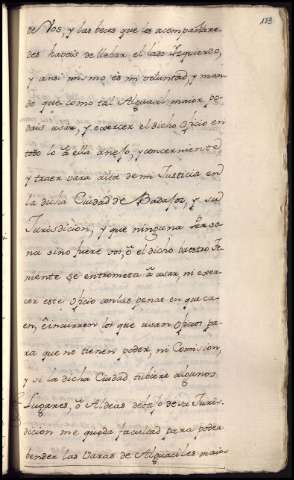 113
de Vos, y las veces que le acompañare
des haveis de llebar el lado Izquierdo,
y ansi mismo es mi voluntad, y man
do que como tal Alguacil maior po
dais usar, y exercer el dicho oficio en
todo lo a ella anejo, y concerniente
y traer vara alta de mi Justicia en
la dicha Ciudad de Badajoz, y su
Jurisdicion, y que ninguna Perso
na sino fuere vos, ó el dicho vuestro Te
niente se entrometa a usar, ni exer
cer este oficio con las penas en que ca
en, é incurren los que usan oficios pa
ra que no tienen poder, ni Comision,
y si la dicha Ciudad tubiere algunos
Lugares, ó Aldeas debajo de su Juris-
dicion me queda facultad para poder
bender las Varas de Alguaciles maio